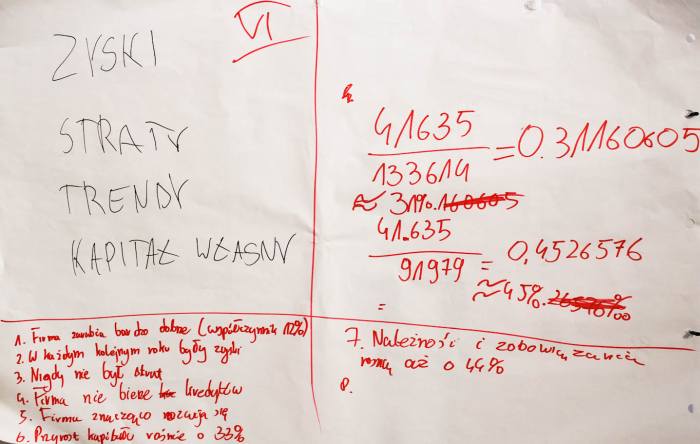 VI
ZYSKI
STRATY
TRENDY
KAPITAŁ WŁASNY
41635
133614
=0.31160605
≈ 31%
41.635
91979
= 0,4526576
≈ 45%
=
1. Firma zarabia bardzo dobrze (współczynnik 12%)
2. W każdym kolejnym roku były zyski
3. Nigdy nie był strat
4. Firma nie bierze kredytów
5. Firma znacząco rozwija się
6. Przyrost kapitału rośnie o 33%
7. Należności i zobowiązania
rosną aż o 44%
8.